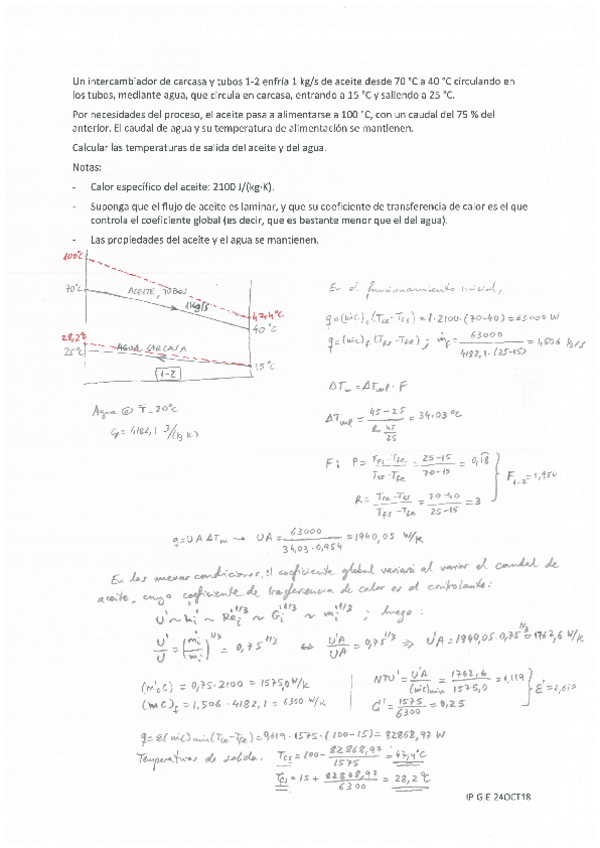 Un intercambiador de carcasa y tubos 1-2 enfría 1 kg/s de aceite desde 70 °C a 40 °C circulando en
los tubos, mediante agua, que circula en carcasa, entrando a 15 °C y saliendo a 25 °C.
Por necesidades del proceso, el aceite pasa a alimentarse a 100 °C, con un caudal del 75 % del
anterior. El caudal de agua y su temperatura de alimentación se mantienen.
Calcular las temperaturas de salida del aceite y del agua.
Notas:
- Calor específico del aceite: 2100 J/(kg·K).
- Suponga que el flujo de aceite es laminar, y que su coeficiente de transferencia de calor es el que
controla el coeficiente global (es decir, que es bastante menor que el del agua).
- Las propiedades del aceite y el agua se mantienen.
100°C
70°C
ACEITE, TUBOS
1 kg/s
47,4°C
40°C
28,2°C
25°C
AGUA, CARCASA
15°C
1-2
Agua @ T=20°C
Cp=4182,1 J/(kg K)
En el funcionamiento inicial,
q=(ṁC)c(Tce-Tcs)=1·2100·(70-40)=63000 W
q=(ṁC)f(Tfs-Tfe); ṁf=63000/(4182,1·(25-15))=1,506 kg/s
ΔTm=ΔTml·F
ΔTml=(45-25)/(ln 45/25)=34,03°C
F: P=(Tfs-Tfe)/(Tce-Tfe)=(25-15)/(70-15)=0,18
R=(Tce-Tcs)/(Tfs-Tfe)=(70-40)/(25-15)=3
F1-2=0,954
q=UAΔTm → UA=63000/(34,03·0,954)=1940,05 W/K
En las nuevas condiciones, el coeficiente global variará al variar el caudal de
aceite, cuyo coeficiente de trasferencia de calor es el controlante:
U'~hi'~Rei'^1/3~Gi'^1/3~ṁi'^1/3; luego:
U'/U=(ṁi'/ṁi)^1/3=0,75^1/3 ⇔ U'A/UA=0,75^1/3 ⇒ U'A=1940,05·0,75^1/3=1762,6 W/K
(ṁ'cC)=0,75·2100=1575,0 W/K
(ṁC)f=1,506·4182,1=6300 W/K
NTU'=U'A/(ṁC)min=1762,6/1575,0=1,119
C'=1575/6300=0,25
ε'=0,619
q=ε(ṁC)min(Tce-Tfe)=0,619·1575·(100-15)=82868,97 W
Temperaturas de salida: Tcs=100-82868,97/1575=47,4°C
Tfs=15+82868,97/6300=28,2°C
IP G.E 24OCT18